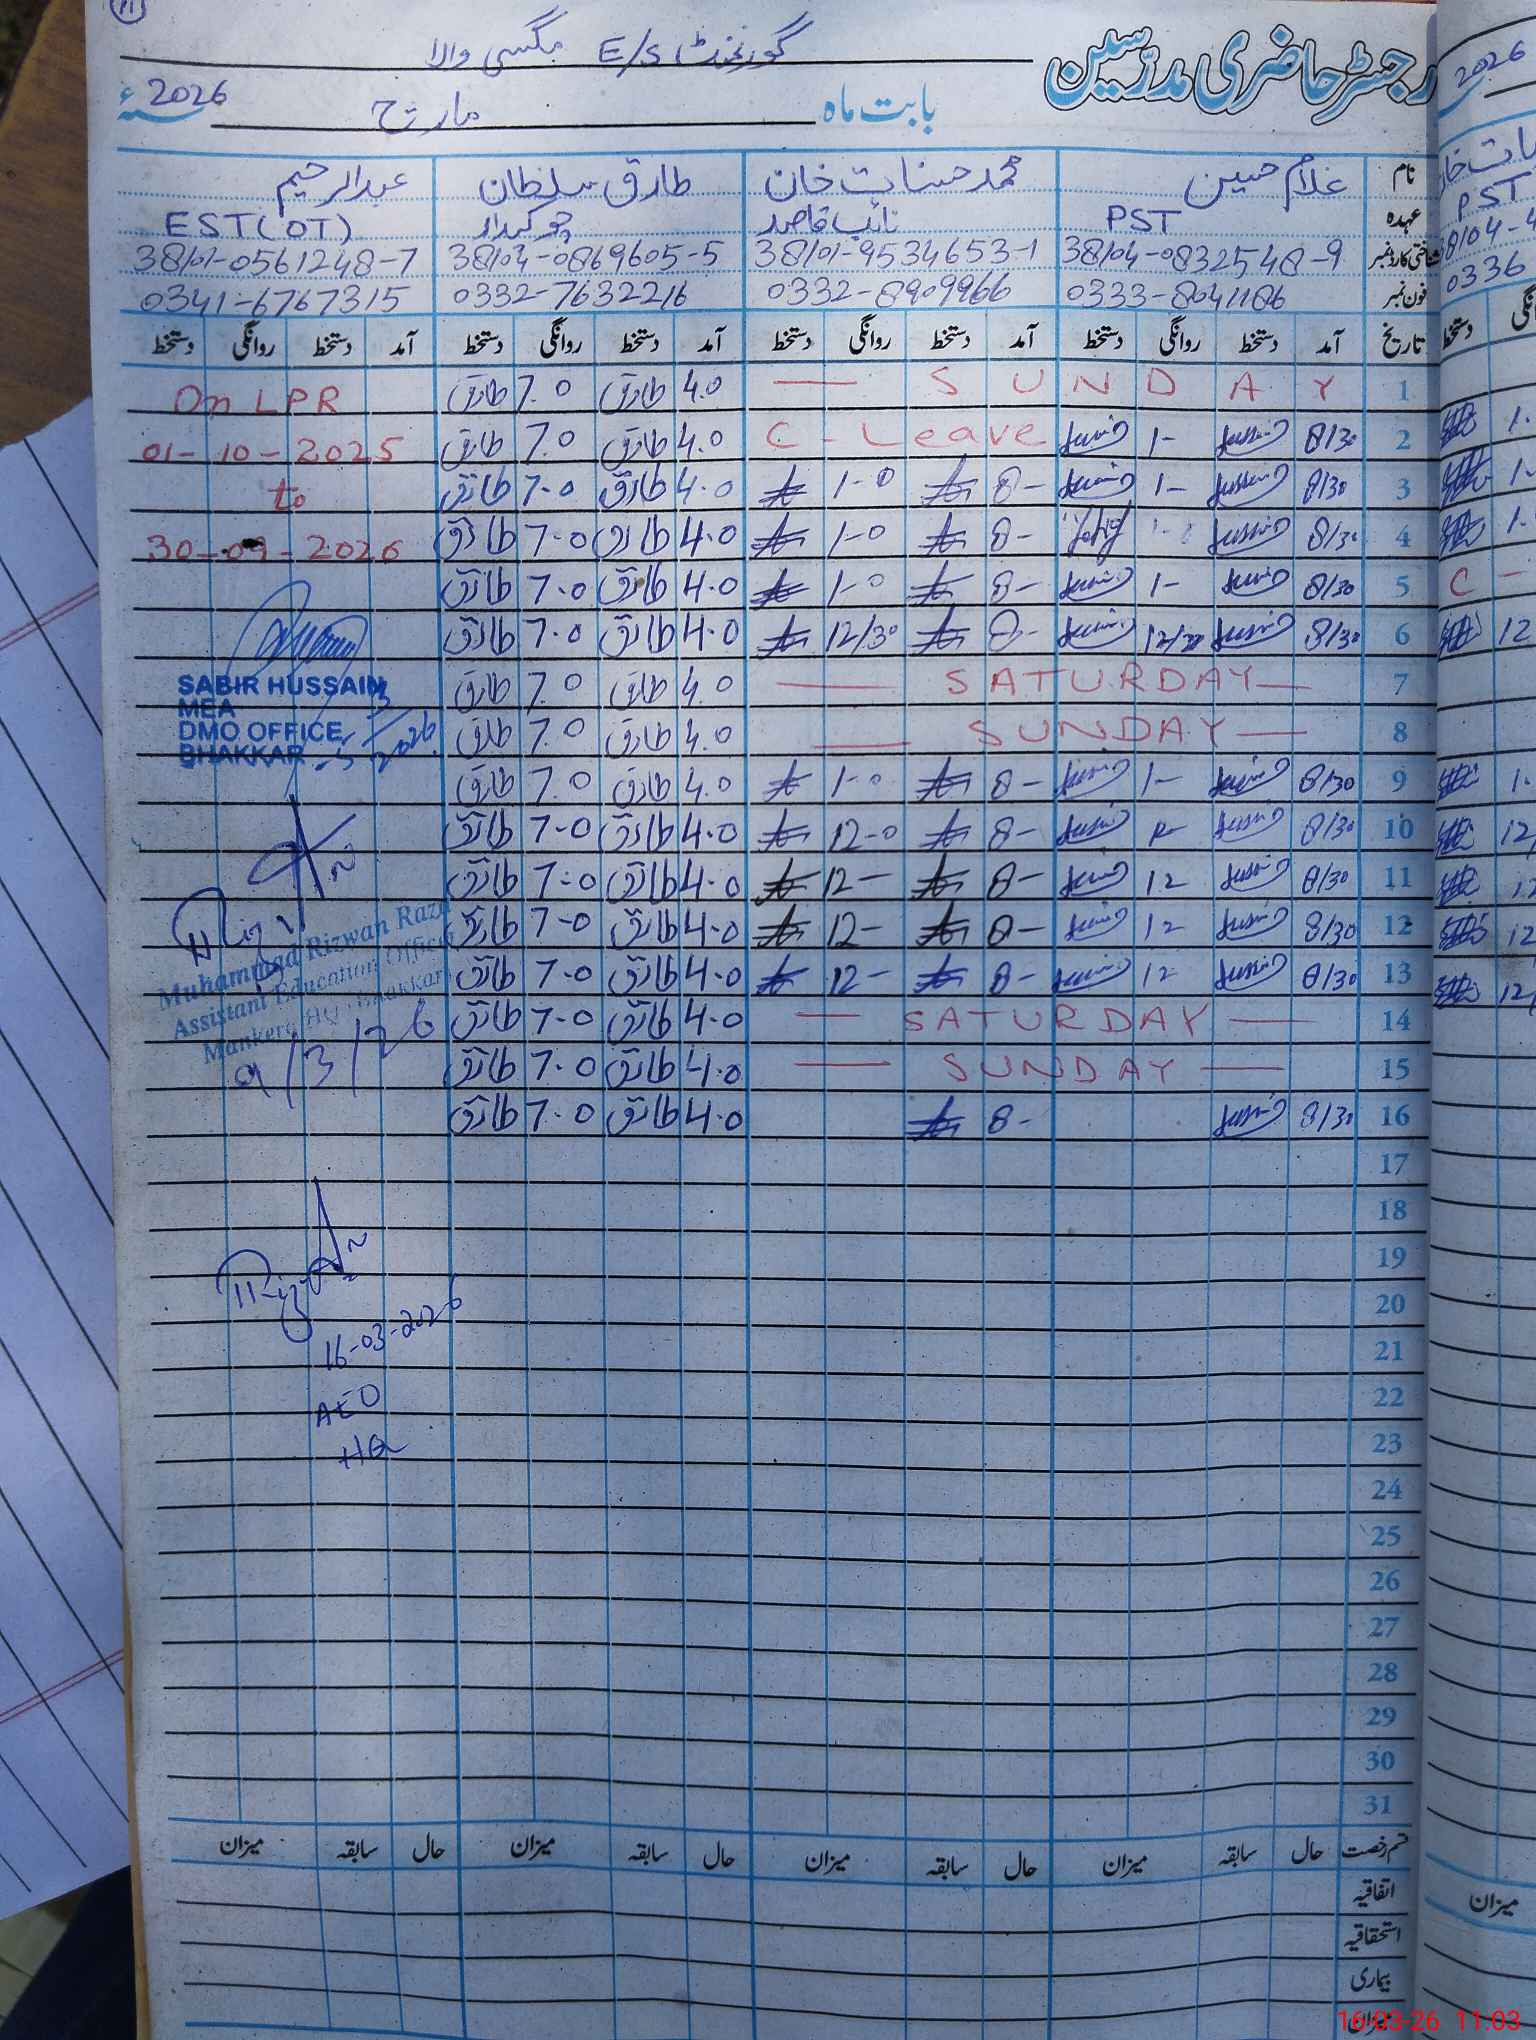 رجسٹر حاضری مدرّسین گورنمنٹ E/S مگسی والا
بابت ماہ مارچ 2026ء
نام غلام حسین محمد حسنات خان طارق سلطان عبدالرحیم
عہدہ PST نائب قاصد چوکیدار EST(OT)
شناختی کارڈ نمبر 38104-0832548-9 38101-9534653-1 38104-0869605-5 38101-0561248-7
فون نمبر 0333-8041186 0332-8909966 0332-7632216 0341-6767315
تاریخ آمد دستخط روانگی دستخط آمد دستخط روانگی دستخط آمد دستخط روانگی دستخط آمد دستخط روانگی دستخط
1 SUNDAY 4.0 طارق 7.0 طارق On LPR
2 8/30 1- C-Leave 4.0 طارق 7.0 طارق 01-10-2025
3 8/30 1- 8- 1-0 4.0 طارق 7.0 طارق to
4 8/30 8- 1-0 4.0 طارق 7.0 طارق 30-09-2026
5 8/30 1- 8- 1-0 4.0 طارق 7.0 طارق
6 8/30 8- 12/30 4.0 طارق 7.0 طارق
7 SATURDAY 4.0 طارق 7.0 طارق
8 SUNDAY 4.0 طارق 7.0 طارق
9 8/30 1- 8- 1-0 4.0 طارق 7.0 طارق
10 8/30 8- 12-0 4.0 طارق 7.0 طارق
11 8/30 12 8- 12- 4.0 طارق 7.0 طارق
12 8/30 12 8- 12- 4.0 طارق 7.0 طارق
13 8/30 12 8- 12- 4.0 طارق 7.0 طارق
14 SATURDAY 4.0 طارق 7.0 طارق
15 SUNDAY 4.0 طارق 7.0 طارق
16 8/30 8- 4.0 طارق 7.0 طارق
17
18
19
20
21
22
23
24
25
26
27
28
29
30
31
SABIR HUSSAIN
MEA
DMO OFFICE
BHAKKAR
Muhammad Rizwan Raza
Assistant Education Officer
Mankera HQ Bhakkar
9/3/26
16-03-2026
AEO
HQ
قسم رخصت حال سابقہ میزان حال سابقہ میزان حال سابقہ میزان حال سابقہ میزان
اتفاقیہ
استحقاقیہ
بیماری
میزان
2026
PST
0336
دستخط
C -
میزان
16-03-26 11:03